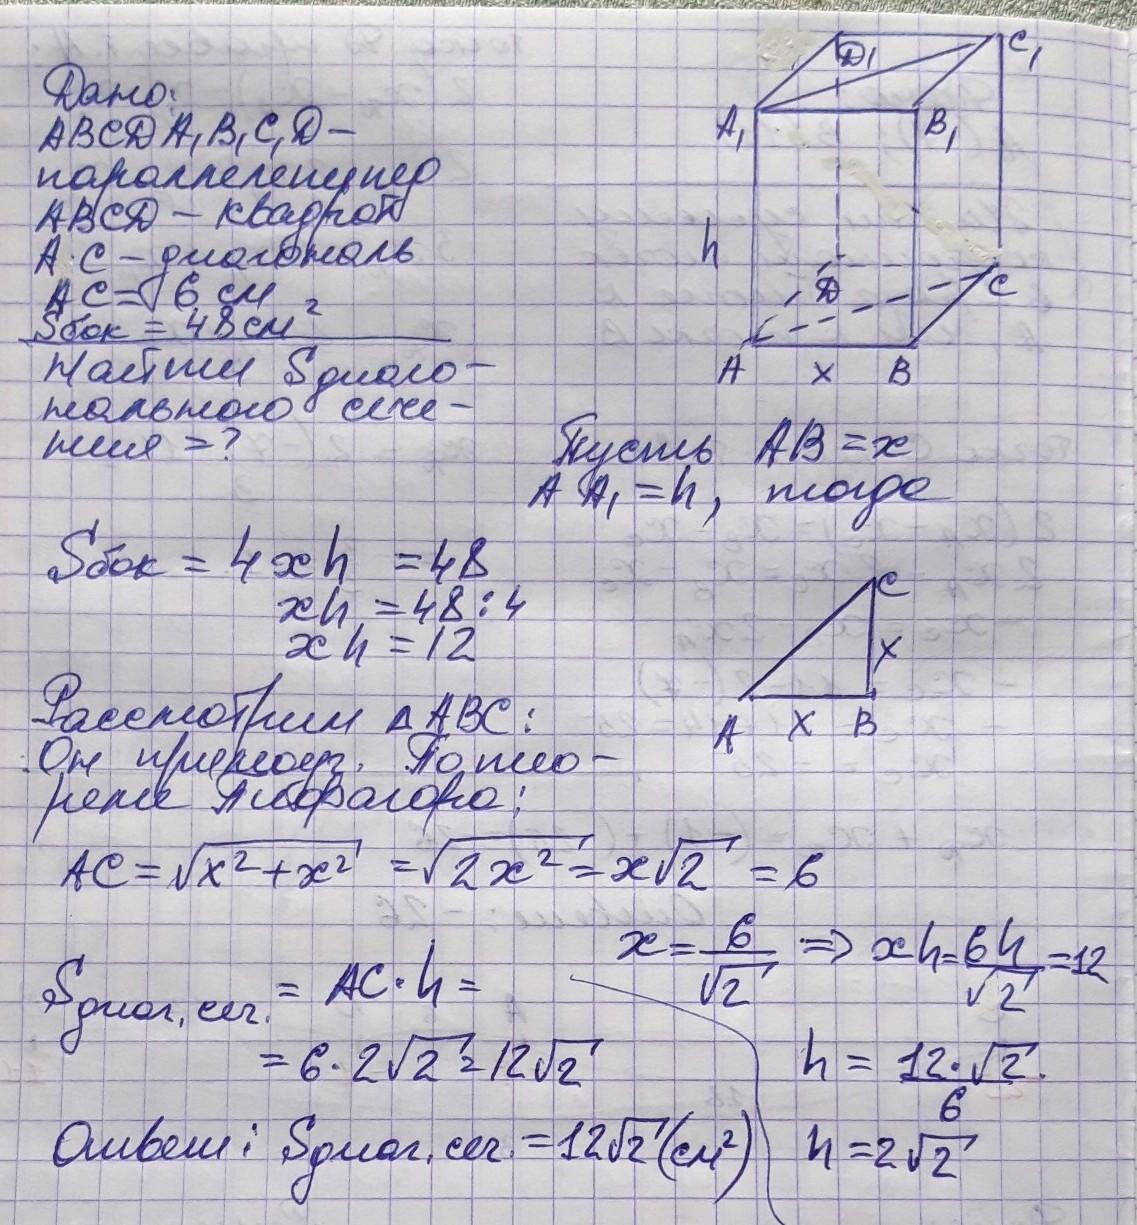 Дано:
ABCDA₁B₁C₁D –
параллелепипед
ABCD – квадрат
AC – диагональ
AC = 6 см
Sбок = 48 см²
Найти Sдиаго-
нального сече-
ния = ?
D₁
C₁
A₁
B₁
h
D
C
A
x
B
Пусть AB = x
AA₁ = h, тогда
Sбок = 4xh = 48
xh = 48 : 4
xh = 12
C
x
A
x
B
Рассмотрим △ABC:
Он прямоуг. По тео-
реме Пифагора:
AC = √x² + x² = √2x² = x√2 = 6
x = 6/√2 => xh = 6h/√2 = 12
Sдиаг. сеч. = AC · h =
= 6 · 2√2 = 12√2
h = 12·√2/6
h = 2√2
Ответ: Sдиаг. сеч. = 12√2 (см²)